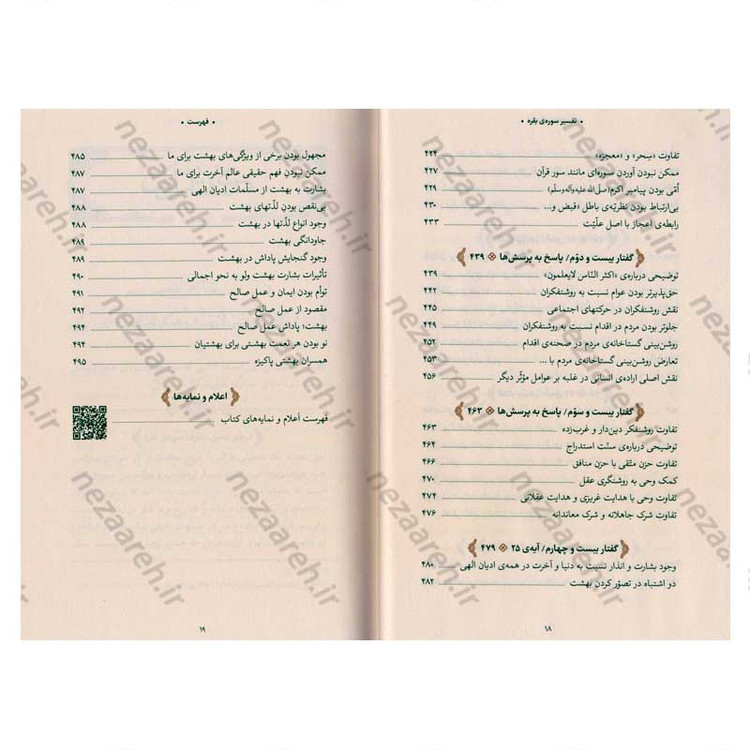 • تفسیر سوره‌ی بقره •
تفاوت «سِحر» و «معجزه» ۴۲۴
ممکن نبودن آوردن سوره‌ای مانند سور قرآن ۴۲۷
اُمّی بودن پیامبر اکرم(صلّی الله علیه وآله وسلّم) ۴۲۹
بی‌ارتباط بودن نظریّه‌ی باطل «قبض و... ۴۳۰
رابطه‌ی اعجاز با اصل علّیّت ۴۳۳
گفتار بیست و دوّم/ پاسخ به پرسش‌ها ۴۳۹
توضیحی درباره‌ی «اکثر النّاس لایعلمون» ۴۳۹
حق‌پذیرتر بودن عوام نسبت به روشنفکران ۴۴۲
نقش روشنفکران در حرکتهای اجتماعی ۴۴۵
جلوتر بودن مردم در اقدام نسبت به روشنفکران ۴۴۹
روشن‌بینی گستاخانه‌ی مردم در صحنه‌ی اقدام ۴۵۲
تعارض روشن‌بینی گستاخانه‌ی مردم با ... ۴۵۳
نقش اصلی اراده‌ی انسانی در غلبه بر عوامل مؤثّر دیگر ۴۵۶
گفتار بیست و سوّم/ پاسخ به پرسش‌ها ۴۶۳
تفاوت روشنفکر دین‌دار و غرب‌زده ۴۶۳
توضیحی درباره‌ی سنّت استدراج ۴۶۴
تفاوت حزن متّقی با حزن منافق ۴۶۶
کمک وحی به روشنگری عقل ۴۷۰
تفاوت وحی با هدایت غریزی و هدایت عقلانی ۴۷۴
تفاوت شرک جاهلانه و شرک معاندانه ۴۷۶
گفتار بیست و چهارم/ آیه‌ی ۲۵ ۴۷۹
وجود بشارت و انذار نسبت به دنیا و آخرت در همه‌ی ادیان الهی ۴۸۰
دو اشتباه در تصوّر کردن بهشت ۴۸۲
۱۸
• فهرست •
مجهول بودن برخی از ویژگی‌های بهشت برای ما ۴۸۵
ممکن نبودن فهم حقیقی عالم آخرت برای ما ۴۸۷
بشارت به بهشت از مسلّمات ادیان الهی ۴۸۷
بی‌نقص بودن لذّتهای بهشت ۴۸۸
وجود انواع لذّتها در بهشت ۴۸۸
جاودانگی بهشت ۴۸۹
وجود گنجایش پاداش در بهشت ۴۸۹
تأثیرات بشارت بهشت ولو به نحو اجمالی ۴۹۰
توأم بودن ایمان و عمل صالح ۴۹۱
مقصود از عمل صالح ۴۹۲
بهشت؛ پاداش عمل صالح ۴۹۴
نو بودن هر نعمت بهشتی برای بهشتیان ۴۹۴
همسران بهشتی پاکیزه ۴۹۵
اعلام و نمایه‌ها
فهرست اَعلام و نمایه‌های کتاب
۱۹
nezaareh.ir
nezaareh.ir
nezaareh.ir
nezaareh.ir
nezaareh.ir
nezaareh.ir